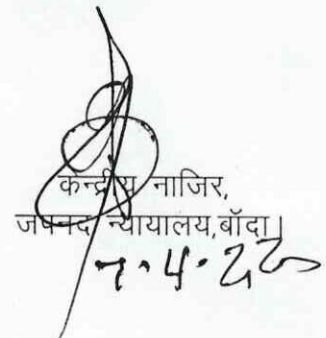 केन्द्रीय नाजिर,
जनपद न्यायालय,बाँदा।
7.4.22